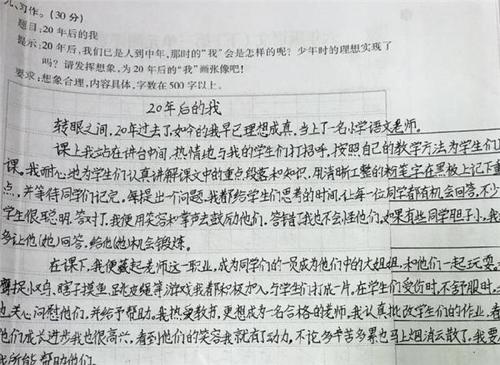 九、习作。(30分)
题目:20年后的我
提示:20年后,我们已是人到中年,那时的“我”会是怎样的呢?少年时的理想实现了
吗?请发挥想象,为20年后的“我”画张像吧!
要求:想象合理,内容具体,字数在500字以上。
20年后的我
转眼之间,20年过去了,如今的我早已理想成真,当上了一名小学语文老师。
课上我站在讲台中间,热情地与我的学生们打招呼,按照自己的教学方法为学生们
课。我耐心地为学生们认真讲解课文中的重点段落和知识,用清晰工整的粉笔字在黑板上记下重
点,并等待同学们记完。每提出一个问题,我都给学生们思考的时间,让每一位同学都有机会回答,不少
学生很聪明,答对了,我便用笑容和掌声去鼓励他们,答错了我也不会怪他们,如果有些同学胆子小,我
多让他(她)回答,给他(她)机会锻炼。
在课下,我便藏起老师这一职业,成为同学们的一员,成为他们中的大姐姐,和他们一起玩耍
捉小鸡、瞎子摸鱼、跳皮绳等游戏我都积极加入,与学生们打成一片。在学生们受伤时、不舒服时,
也关心问慰他们,并给予帮助。我热爱教育,更想成为一名合格的老师,我认真批改学生们的作业,看
他们成长进步我也很高兴,看到他们的笑容我就有了动力,不论多辛苦多累也马上烟消云散了,我要
我所能帮助他们。